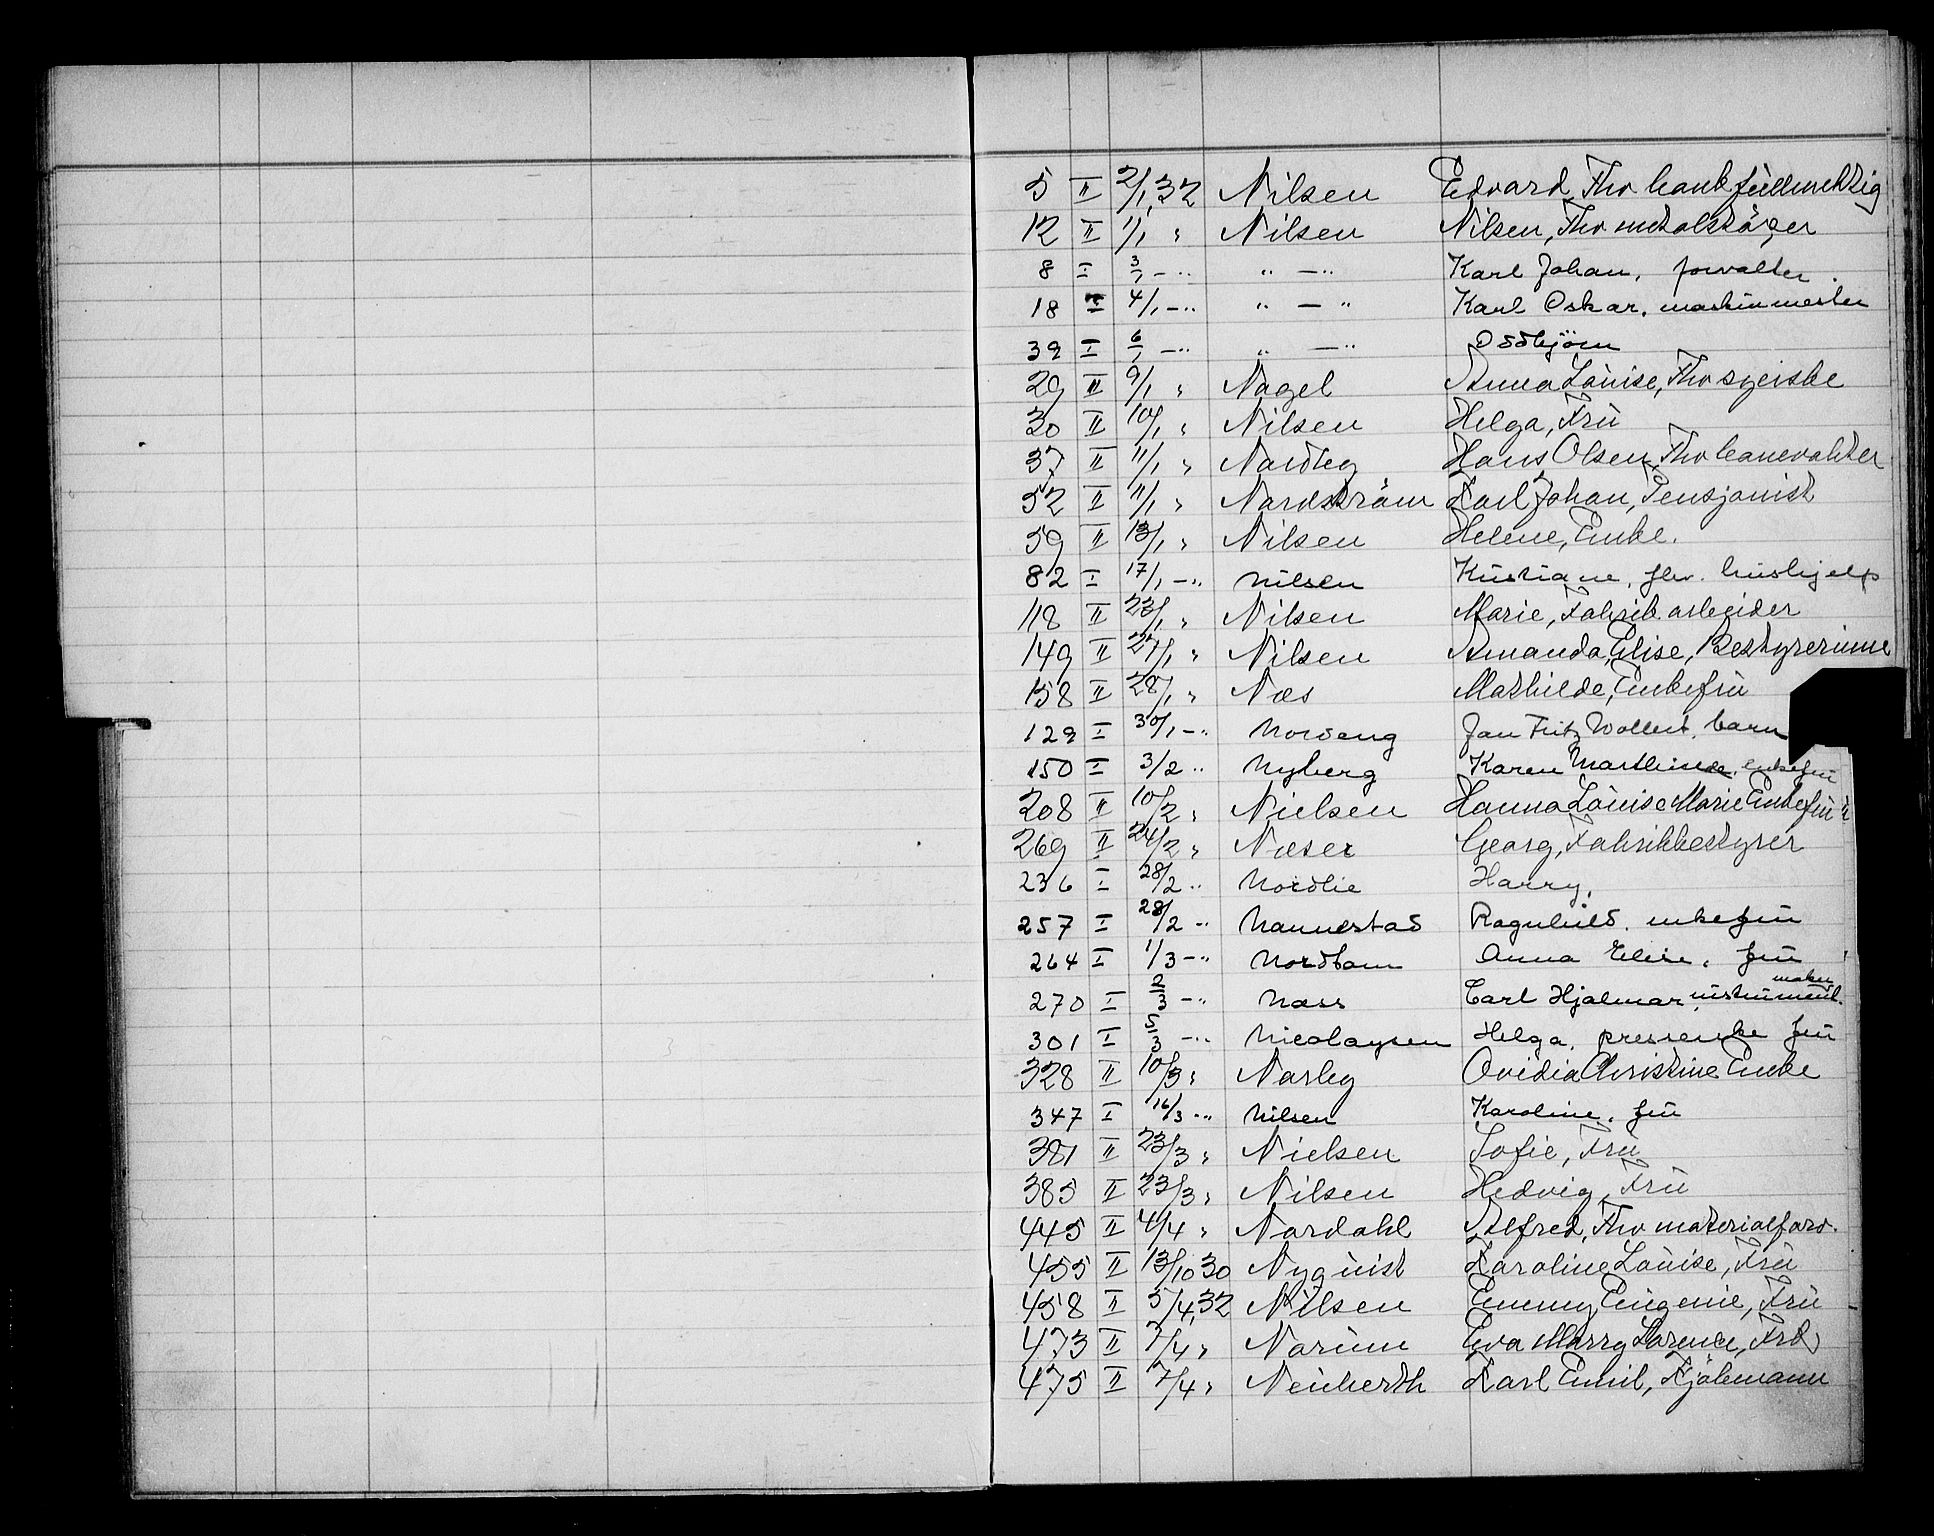 5 II 2/1 32 Nilsen Edvard, Fhv bankfullmektig
12 II 1/1 " Nilsen Nilsen, Fhv metalstøper
8 I 3/1 - " " - " Karl Johan, forvalter.
18 I 4/1 - " " - " Karl Oskar, maskinmester
39 I 6/1 - " " - " Oddbjörn
29 II 9/1 " Nagel Anna Louise, Fhv syerske
30 II 10/1 " Nilsen Helga, Fru
37 II 11/1 " Nordby Hans Olsen, Fhv banevokter
52 II 11/1 " Nordström Karl Johan, Pensjonist
59 II 13/1 " Nilsen Helene, Enke.
82 I 17/1 - " Nilsen Kristiane, fhv. hushjelp
118 II 23/1 " Nilsen Marie, Fabrikarbeider
149 II 27/1 " Nilsen Amanda Elise, Bestyrerinne
158 II 28/1 " Næs Mathilde, Enkefru
129 I 30/1 - " Nordeng Jan Fritz Wollert, barn
150 I 3/2 " Nyberg Karen Marthinede, enkefru
208 II 10/2 " Nielsen Hanna Louise Marie Enkefru
269 II 24/2 " Næser Georg, Fabrikkbestyrer
236 I 28/2 " Nordlie Harry,
257 I 28/2 - " Nannestad Ragnhild, enkefru
264 I 1/3 - " Nordbom Anna Elise, fru
270 I 2/3 - " Næss Carl Hjalmar, instrument.maker
301 I 5/3 - " Nicolaysen Helga, presseenke fru
328 II 10/3 " Norby Ovidia Christine Enke
347 I 16/3 - " Nilsen Karoline, fru
381 II 23/3 " Nielsen Sofie, Fru
385 II 23/3 " Nilsen Hedvig, Fru
445 II 4/4 " Nordahl Alfred, Fhv materialforv.
455 II 13/10 30 Nyquist Karoline Louise, Fru
458 II 5/4 32 Nilsen Emmy Eugenie, Fru
473 II 7/4 " Norum Eva Marry Lorence, Frk
475 II 7/4 " Neuberth Karl Emil, Kjölemann